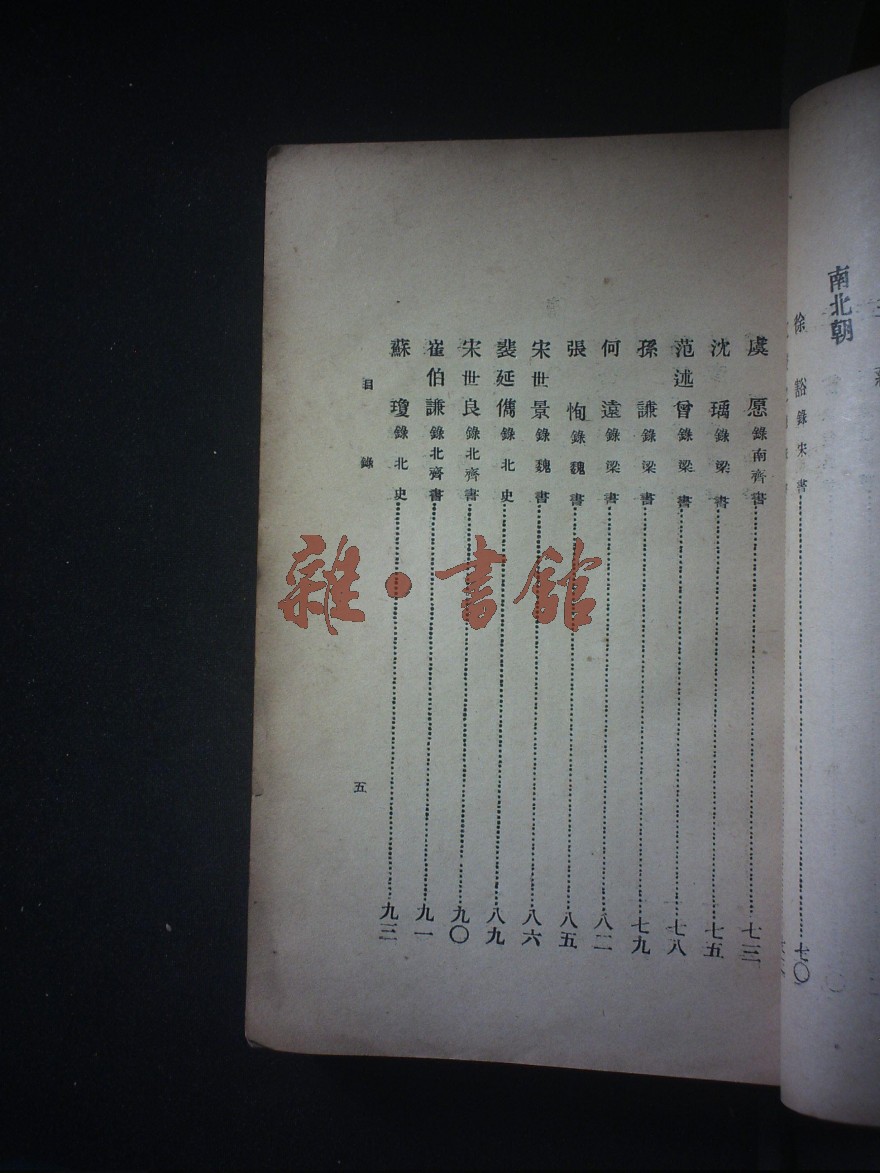 南北朝
徐豁 錄宋書 七〇
虞愿 錄南齊書 七三
沈瑀 錄梁書 七五
范述曾 錄梁書 七八
孫謙 錄梁書 七九
何遠 錄梁書 八二
張恂 錄魏書 八五
宋世景 錄魏書 八六
裴延儁 錄北史 八九
宋世良 錄北齊書 九〇
崔伯謙 錄北齊書 九一
蘇瓊 錄北史 九三
目錄
五
雜·書館